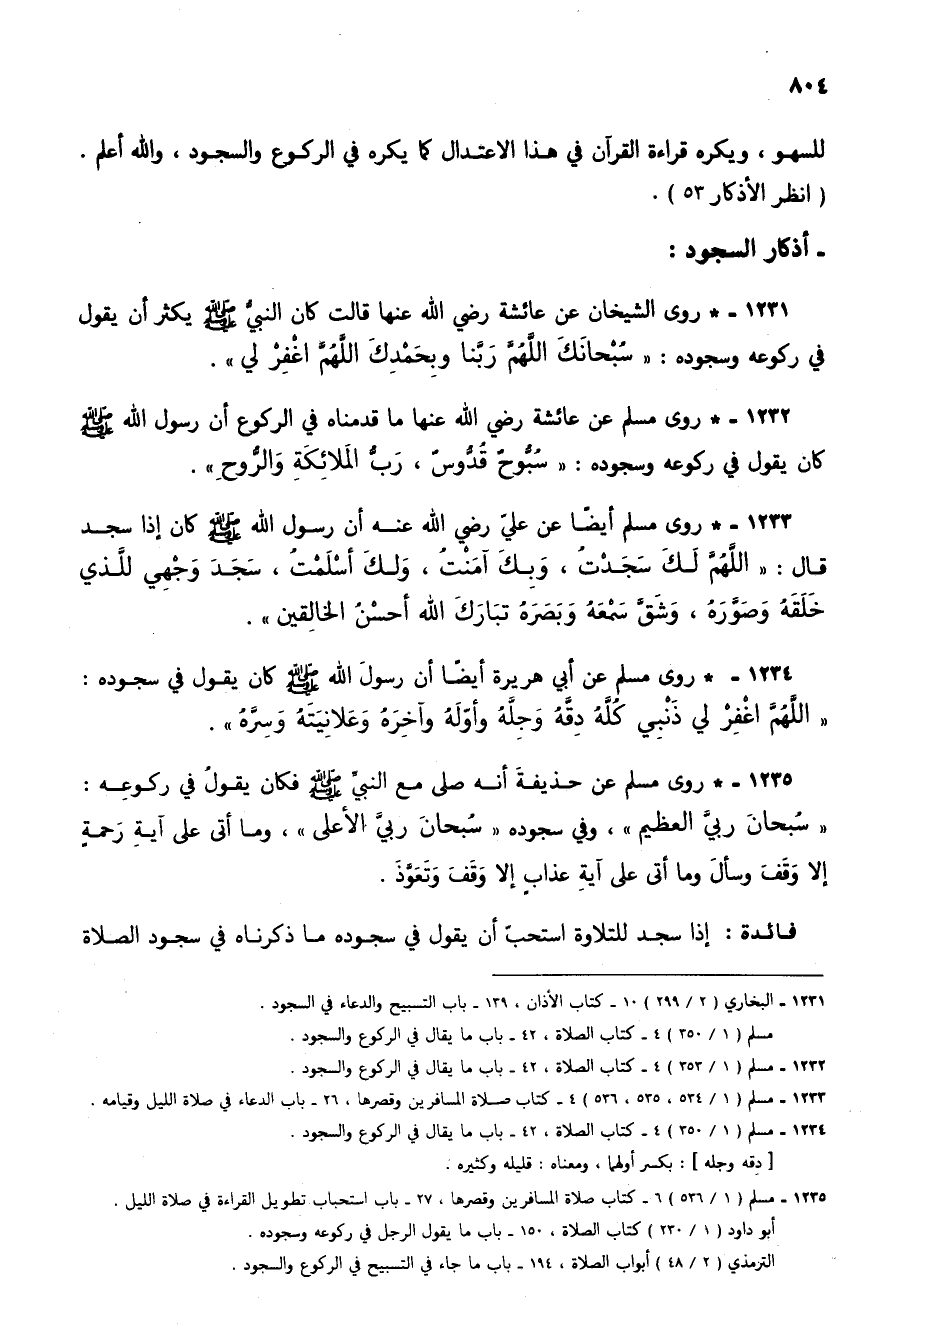 ٨٠٤
للسهو ، ويكره قراءة القرآن في هذا الاعتدال كما يكره في الركوع والسجود ، والله أعلم .
( انظر الأذكار ٥٣ ) .
ـ أذكار السجود :
١٢٣١ ـ * روى الشيخان عن عائشة رضي الله عنها قالت كان النبيُّ ﷺ يكثر أن يقول
في ركوعه وسجوده : « سُبْحانَكَ اللَّهُمَّ رَبَّنا وبِحَمْدِكَ اللَّهُمَّ اغْفِرْ لي » .
١٢٣٢ ـ * روى مسلم عن عائشة رضي الله عنها ما قدمناه في الركوع أن رسول الله ﷺ
كان يقول في ركوعه وسجوده : « سُبُّوحٌ قُدُّوسٌ ، رَبُّ المَلائِكَةِ وَالرُّوحِ » .
١٢٣٣ ـ * روى مسلم أيضًا عن عليّ رضي الله عنه أن رسول الله ﷺ كان إذا سجد
قال : « اللَّهُمَّ لَكَ سَجَدْتُ ، وَبِكَ آمَنْتُ ، وَلكَ أَسْلَمْتُ ، سَجَدَ وَجْهِي للَّذي
خَلَقَهُ وَصَوَّرَهُ ، وَشَقَّ سَمْعَهُ وَبَصَرَهُ تبَارَكَ الله أحسْنُ الخالِقين » .
١٢٣٤ ـ * روى مسلم عن أبي هريرة أيضًا أن رسولَ الله ﷺ كان يقول في سجوده :
« اللَّهُمَّ اغْفِرْ لي ذَنْبي كُلَّهُ دِقَّهُ وَجِلَّهُ وأوّلَهُ وآخِرَهُ وَعَلانِيَتَهُ وَسِرَّهُ » .
١٢٣٥ ـ * روى مسلم عن حذيفةَ أنه صلى مع النبيِّ ﷺ فكان يقولُ في ركوعِه :
« سُبحانَ ربيَّ العظيم » ، وفي سجوده « سُبحانَ ربيَّ الأعلى » ، وما أتى على آيةِ رَحمةٍ
إلا وَقَفَ وسألَ وما أتى على آيةِ عذابٍ إلا وَقَفَ وَتَعَوَّذَ .
فائدة : إذا سجد للتلاوة استحبّ أن يقول في سجوده ما ذكرناه في سجود الصلاة
١٢٣١ ـ البخاري ( ٢ / ٢٩٩ ) ١٠ ـ كتاب الأذان ، ١٣٩ ـ باب التسبيح والدعاء في السجود .
مسلم ( ١ / ٣٥٠ ) ٤ ـ كتاب الصلاة ، ٤٢ ـ باب ما يقال في الركوع والسجود .
١٢٣٢ ـ مسلم ( ١ / ٣٥٣ ) ٤ ـ كتاب الصلاة ، ٤٢ ـ باب ما يقال في الركوع والسجود .
١٢٣٣ ـ مسلم ( ١ / ٥٣٤ ، ٥٣٥ ، ٥٣٦ ) ٤ ـ كتاب صلاة المسافرين وقصرها ، ٢٦ ـ باب الدعاء في صلاة الليل وقيامه .
١٢٣٤ ـ مسلم ( ١ / ٣٥٠ ) ٤ ـ كتاب الصلاة ، ٤٢ ـ باب ما يقال في الركوع والسجود .
[ دقه وجله ] : بكسر أولهما ، ومعناه : قليله وكثيره .
١٢٣٥ ـ مسلم ( ١ / ٥٣٦ ) ٦ ـ كتاب صلاة المسافرين وقصرها ، ٢٧ ـ باب استحباب تطويل القراءة في صلاة الليل .
أبو داود ( ١ / ٢٣٠ ) كتاب الصلاة ، ١٥٠ ـ باب ما يقول الرجل في ركوعه وسجوده .
الترمذي ( ٢ / ٤٨ ) أبواب الصلاة ، ١٩٤ ـ باب ما جاء في التسبيح في الركوع والسجود .